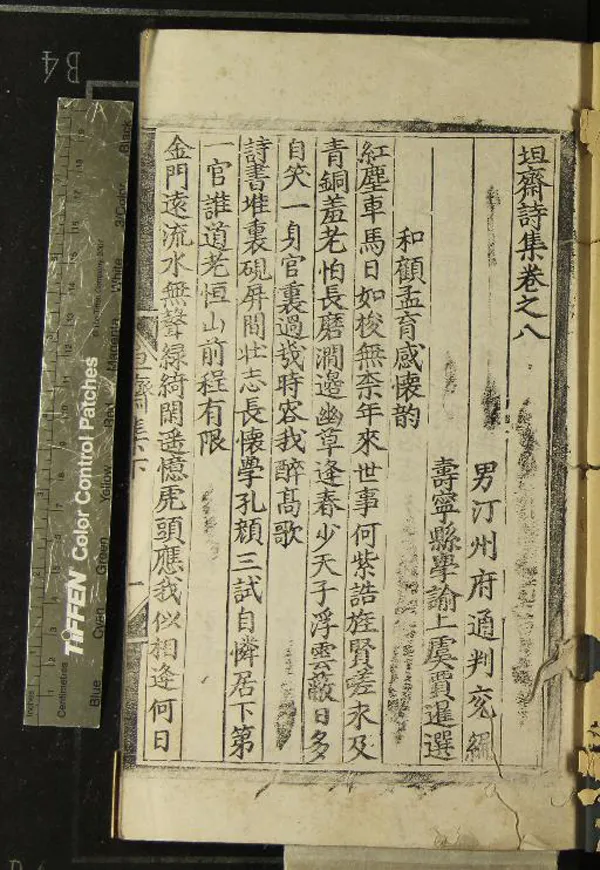 坦齋詩集卷之八
男汀州府通判兖編
壽寧縣學諭上虞賈暹選
和顧孟育感懷韵
紅塵車馬日如梭無柰年來世事何紫誥旌賢嗟未及
青銅羞老怕長磨澗邊幽草逢春少天子浮雲蔽日多
自笑一身官裏過幾時容我醉髙歌
詩書堆裏硯屏間壯志長懷學孔顏三試自憐居下第
一官誰道老恒山前程有限
金門遠流水無聲緑綺閑遥憶虎頭應我似相逢何日
坦齋集下
一
B4
TIFFEN Color Control Patches
© The Tiffen Company, 2007
Inches
Centimetres
Blue
Cyan
Green
Yellow
Red
Magenta
White
3/Color
Black